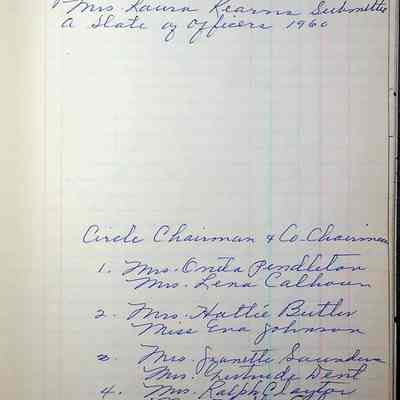 Mrs. Laura Kearns Submitte
a Slate of Officers 1960
Circle Chairman & Co-Chairman
1. Mrs. Onita Pendleton
Mrs. Lena Calhoun
2. Mrs. Hattie Butler
Miss Eva Johnson
3. Mrs. Jeanette Saunders
Mrs. Gertrude Dent
4. Mrs. Ralph Clayton